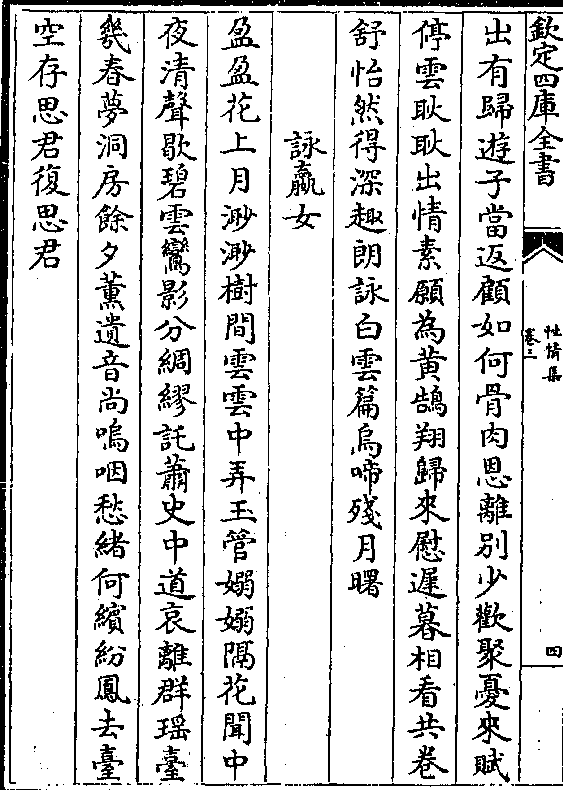 欽定四庫全書
性情集
卷三
四
出有歸遊子當返顧如何骨肉恩離別少歡聚憂來賦
停雲耿耿出情素願為黄鵠翔歸來慰遲暮相看共卷
舒怡然得深趣朗詠白雲篇烏啼殘月曙
詠嬴女
盈盈花上月渺渺樹間雲雲中弄玉管嫋嫋隔花聞中
夜清聲歇碧雲鸞影分綢繆託蕭史中道哀離群瑶臺
幾春夢洞房餘夕薰遺音尚嗚咽愁緒何繽紛鳳去臺
空存思君復思君